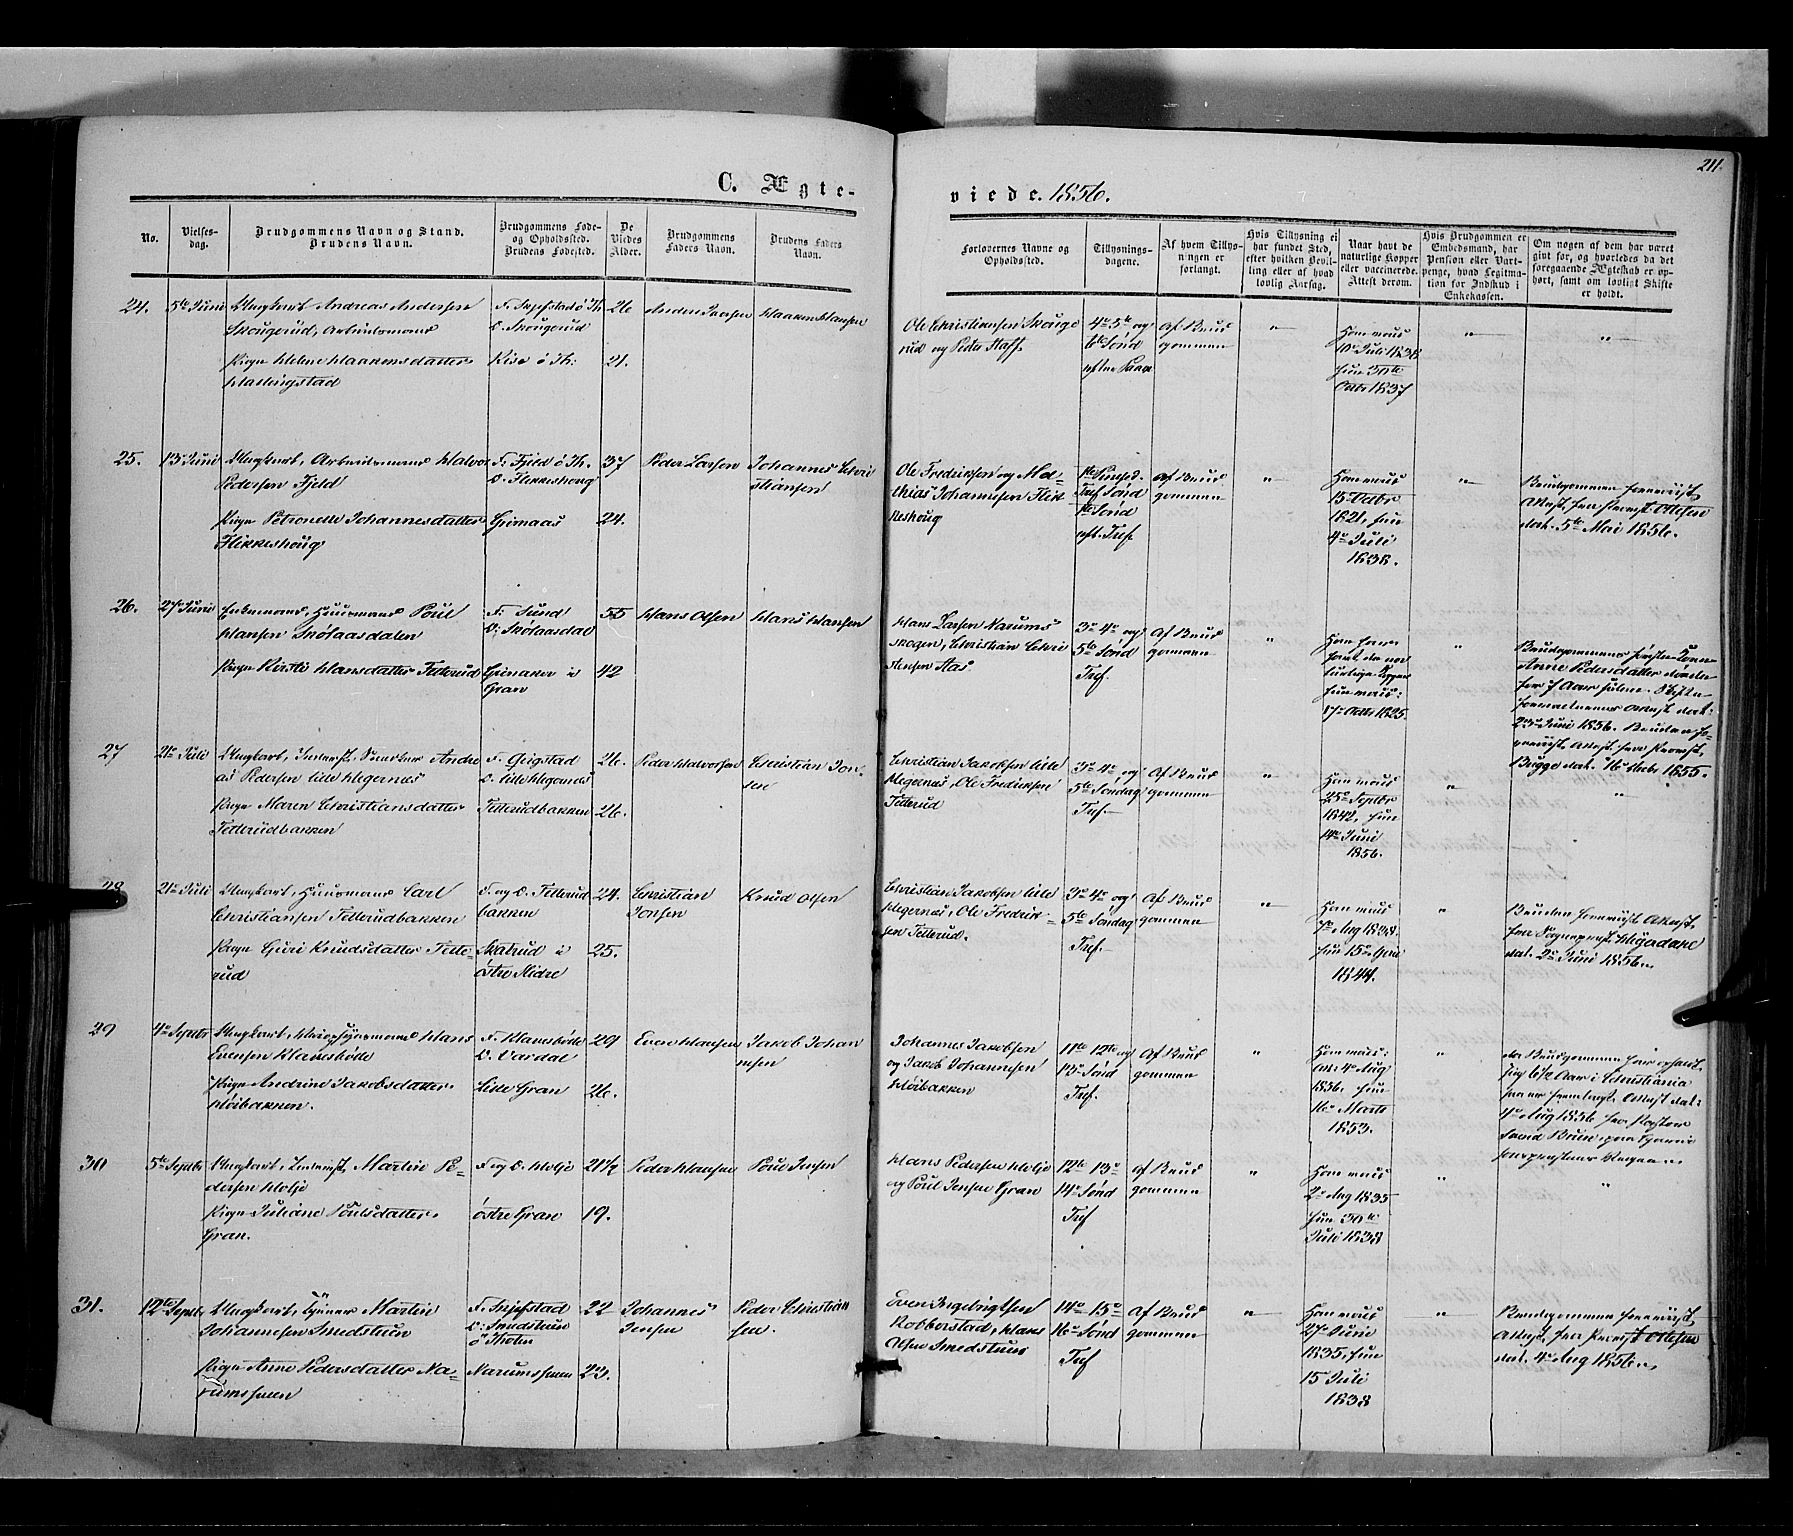 211.
C. Ægte-
viede. 1856.
No.
Vielses-
dag.
Brudgommens Navn og Stand.
Brudens Navn.
Brudgommens Føde-
og Opholdssted.
Brudens Fødested.
De
Viedes
Alder.
Brudgommens
Faders Navn.
Brudens Faders
Navn.
Forlovernes Navne og
Opholdssted.
Tillysnings-
dagene.
Af hvem Tillys-
ningen er
forlangt.
Hvis Tillysning ei
har fundet Sted,
efter hvilken Bevil-
ling eller af hvad
lovlig Aarsag.
Naar havt de
naturlige Kopper
eller vaccinerede.
Attest derom.
Hvis Brudgommen er
Embedsmand, har
Pension eller Vart-
penge, hvad Legitima-
tion for Indskud i
Enkekassen.
Om nogen af dem har været
givt før, og hvorledes da det
foregaaende Ægteskab er op-
hørt, samt om lovligt Skifte
er holdt.
24.
5te Juni
Ungkarl Andreas Andersen
Skougerud, Arbeidsmand
Pigen Helene Haakensdatter
F.
Ø. Skougerud
Kise ö Th:
26
21.
Haaken Hansen
Ole Christiansen Skouge
rud og Peder Staff.
4de 5te og
6te Sønd
efter Paaske
Af Brud
gommen
Ham vacc
10de Juli 1838
hun 30te
Octbr 1837
25.
13 Juni
Ungkarl, Arbeidsmand Halvor
Pedersen Fjeld
Pigen Petronelle Johannesdatter
Flikkeshoug
F. Fjeld ö Th.
O. Flikkeshoug
Grimaas
37
24.
Peder Larsen
Johannes Chri
stiansen
Ole Fredriksen og Mat-
thias Johannesen Flik
keshoug
Tref. Sønd
1ste Sønd
eft. Tref.
Af Brud
gommen
Ham vacc
15 Octbr
1821, hun
4de Juli
1838.
Brudgommen fremviist
Attest fra Provst Ottesen
dat. 5te Mai 1856.
26.
27 Juni
Enkemand, Huusmand Poul
Hansen Skølaasdalen
Pigen Kirsti Hansdatter Tetterud
F. Sund
O: Skølaasdal
Grinaker i
Gran
55
42
Hans Olsen
Hans Hansen
Hans Larsen Narums
skogen, Christian Chri
stensen Aas
3de 4de og
5te Sønd
Tref.
Af Brud
gommen
17de Octbr 1825.
Brudgommens første Kone
Anne Pedersdatter døde
for 7 Aar siden. Skifte-
forvalterens Attest dat.
23de Juni 1856. Bruden fr
emviist Attest fra Provst
Bugge dat. 16 1855.
27
21de Juli
Ungkarl, Andre
as Pedersen lille Hegernes
Pigen Maren Christiansdatter
Tetterudbakken
F. Geigstad
O. lille Hegernes
Tetterudbakken
26.
26.
Peder Halvorsen
Christian Jon-
sen
Christian Jakobsen lille
Hegernes, Ole Fredriksen
Tetterud
3de 4de og
5te Søndag
Tref.
Af Brud
gommen
Ham vacc
25de Septbr
1842, hun
14de Juni
1856.
28
21de Juli
Ungkarl, Huusmand Carl
Christiansen Tetterudbakken
Pigen Guri Knudsdatter Tette-
rud
F. og O. Tetterud
bakken
Skatrud i
østre Slidre
24.
25.
Christian
Jonsen
Knud Olsen
Christian Jakobsen lille
Hegernes, Ole Fredrik-
sen Tetterud.
3de 4de og
5te Søndag
Tref.
Af Brud
gommen
Ham vacc
7de Aug 1838.
hun 15de
1844.
Bruden fremviist Attest
fra Sogneprest
dat. 2de Juni 1856.
29
4de Septbr
Ungkarl, Hans
Evensen Klaaesbøle
Pigen Andrine Jakobsdatter
Høibakken.
F. Klaaesbøle
O. Vardal
Lille Gran
29
26.
Even Hansen
Jakob Johan
nesen
Johannes Jakobsen
og Jakob Johannesen
Høibakken
11te 12te og
13de Sønd
Tref.
Af Brud
gommen
Ham vacc:
4de Aug
1856. hun
16de Marts
1853.
At Brudgommen har opholdt
sig 6 1/2 Aar i Christiania
4de Aug 1856 fra Pastor
Svend Brun
30
5te Septbr
Ungkarl, Martin Pe-
dersen Holje
Pigen Juliane Poulsdatter
Gran.
F. og O. Holje
østre Gran
21 1/2
19.
Peder Hansen
Poul Jensen
Hans Pedersen Holje
og Poul Jensen Gran
12te 13de
14de Sønd
Tref
af Brud
gommen
Ham vacc
2de Aug 1835
hun 30te
Juli 1838
31.
12te Septbr
Ungkarl, Martin
Johannesen Smedstuen
Pigen Anne Pedersdatter Na-
rumssveen
F.
O: Smedstuen
ö Thoten
Narumssveen
22
23.
Johannes
Jensen
Peder Christian
sen.
Even Ingebrigtsen
Robberstad, Hans
Olsen Smedstuen
14de 15de
16de Sønd
Tref
Af Brud
gommen
Ham vacc
27de Juni
1835, hun
15 Juli
1838
Brudgommen fremviist
Attest fra Provst Ottesen
dat. 4de Aug 1856.